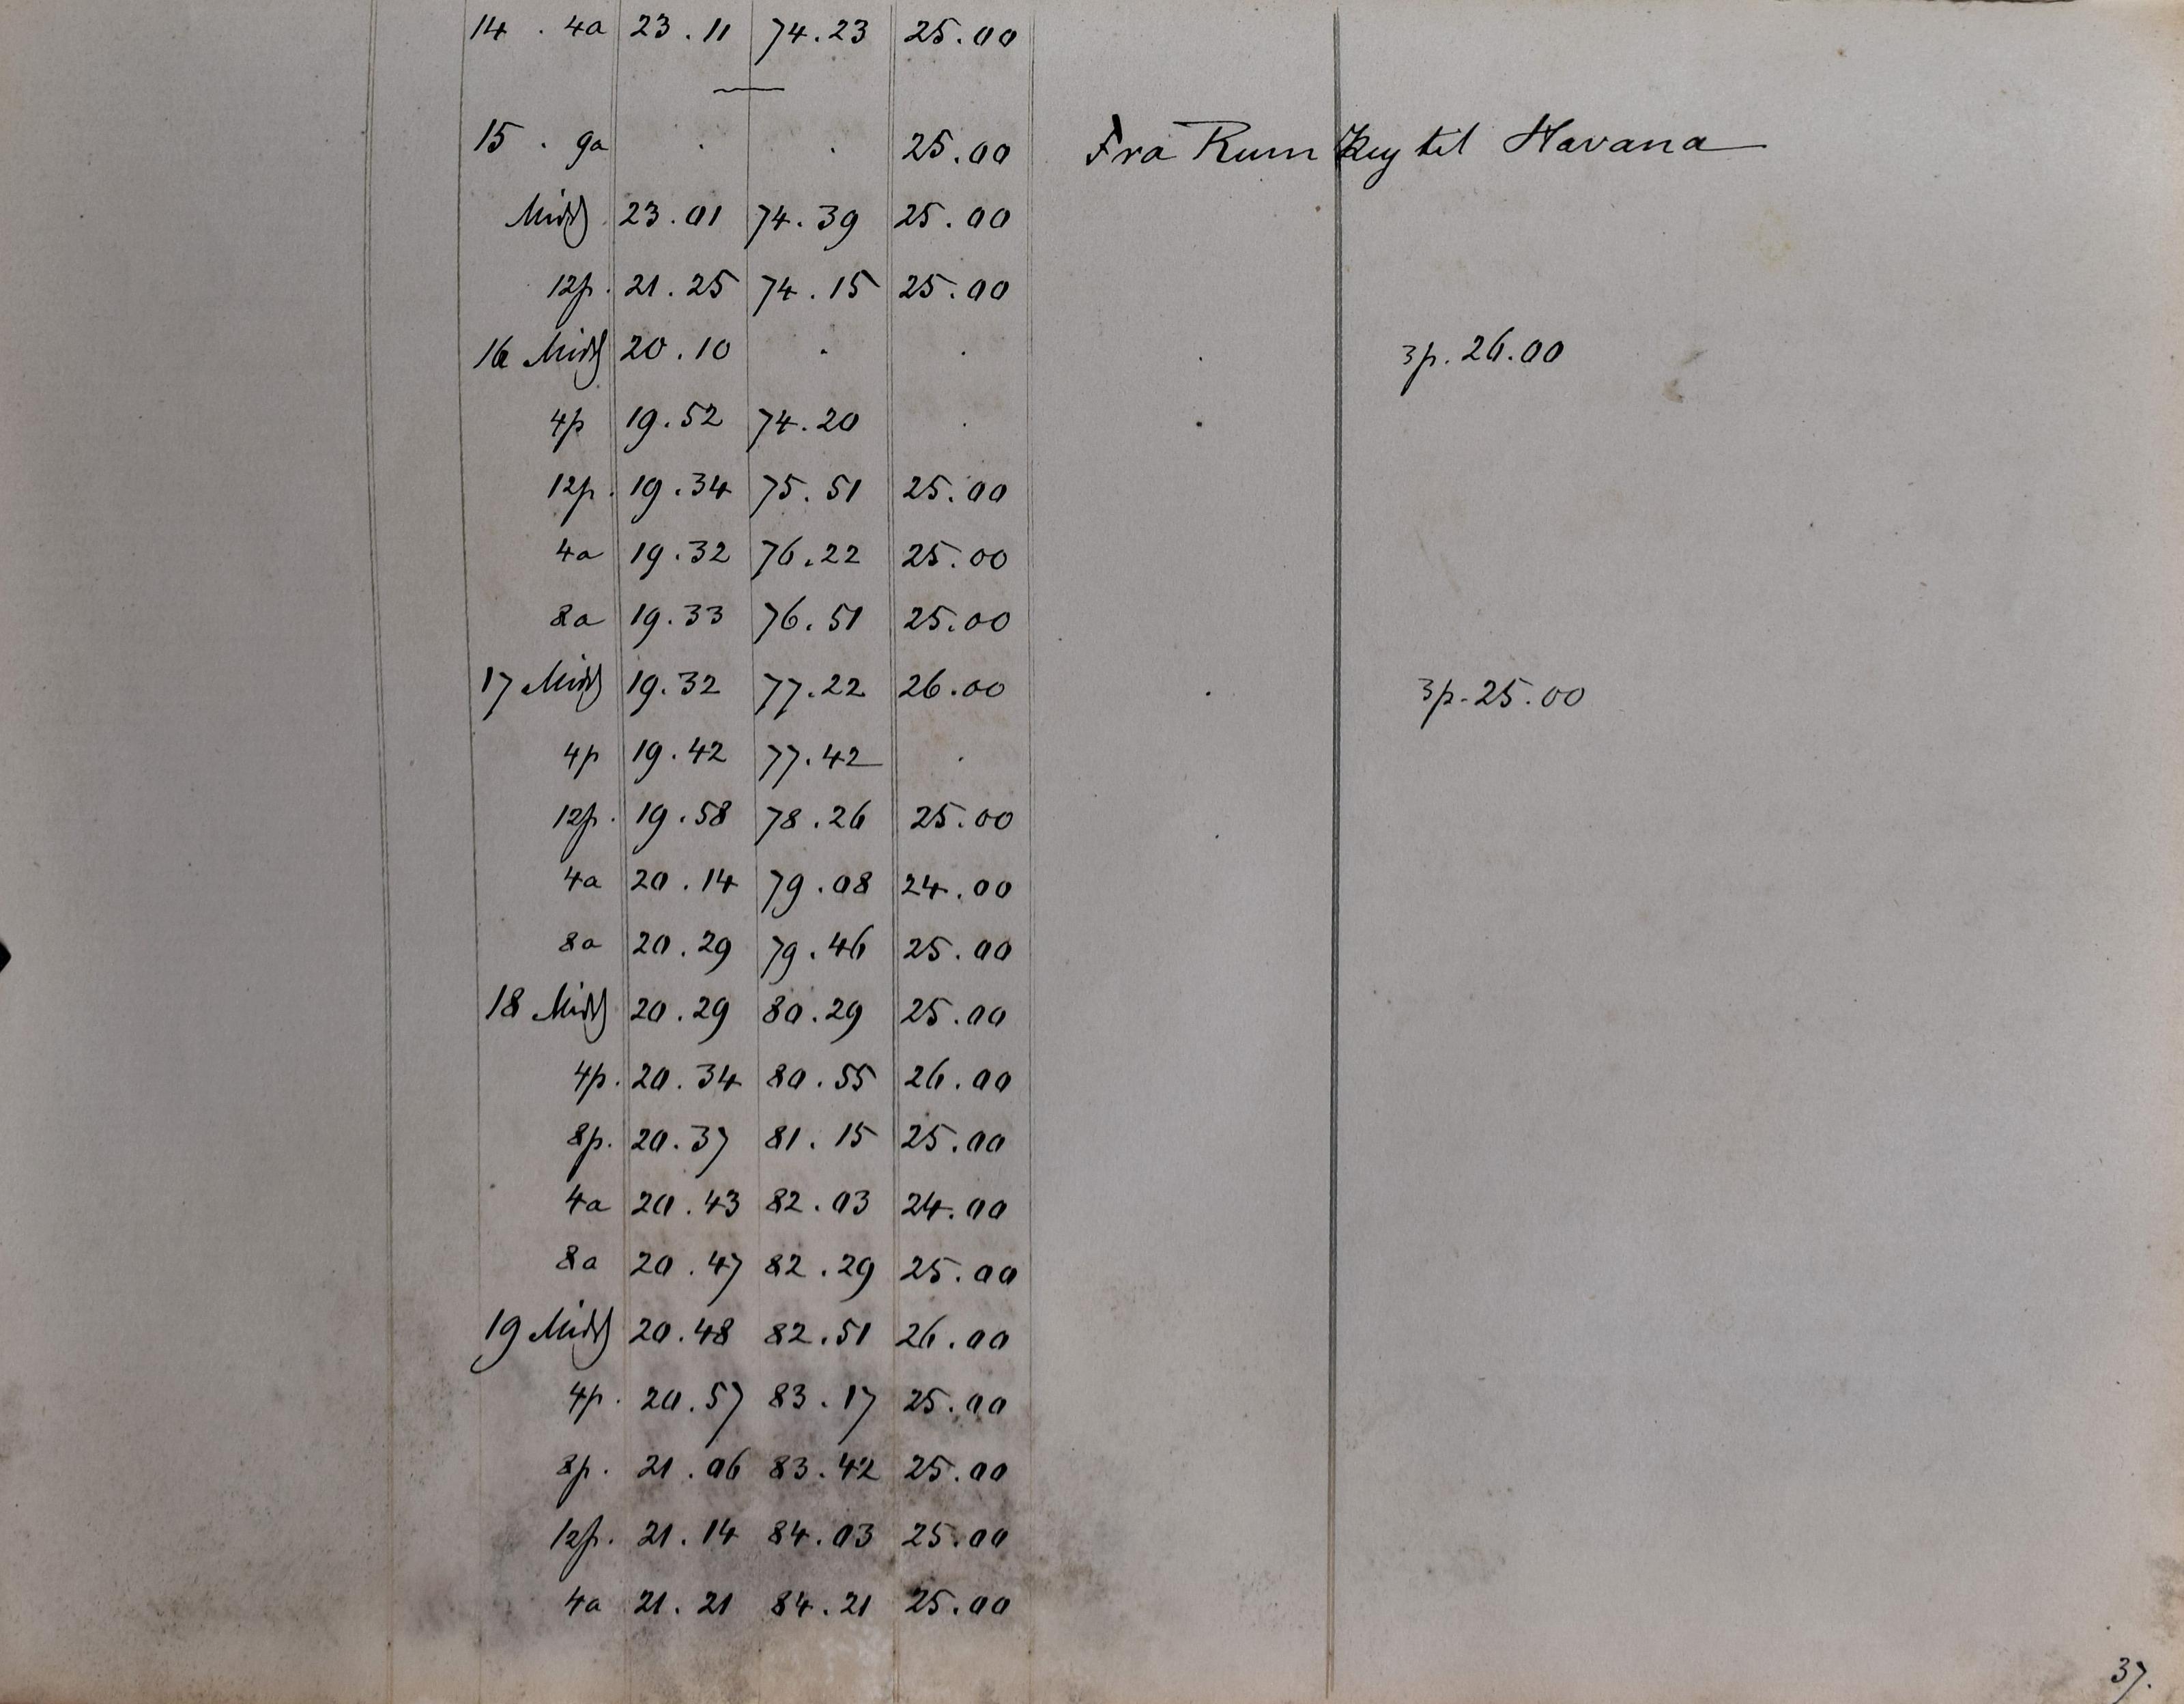 14 . 4a 23.11 74.23 25.00
15 . 9a . . 25.00 Fra Rum Key til Havana
Midd 23.01 74.39 25.00
12p. 21.25 74.15 25.00
16 Midd 20.10 . . . 3p. 26.00
4p 19.52 74.20 . .
12p. 19.34 75.51 25.00
4a 19.32 76.22 25.00
8a 19.33 76.51 25.00
17 Midd 19.32 77.22 26.00 . 3p. 25.00
4p 19.42 77.42 .
12p. 19.58 78.26 25.00
4a 20.14 79.08 24.00
8a 20.29 79.46 25.00
18 Midd 20.29 80.29 25.00
4p. 20.34 80.55 26.00
8p. 20.37 81.15 25.00
4a 20.43 82.03 24.00
8a 20.47 82.29 25.00
19 Midd 20.48 82.51 26.00
4p. 20.57 83.17 25.00
8p. 21.06 83.42 25.00
12p. 21.14 84.03 25.00
4a 21.21 84.21 25.00
37.